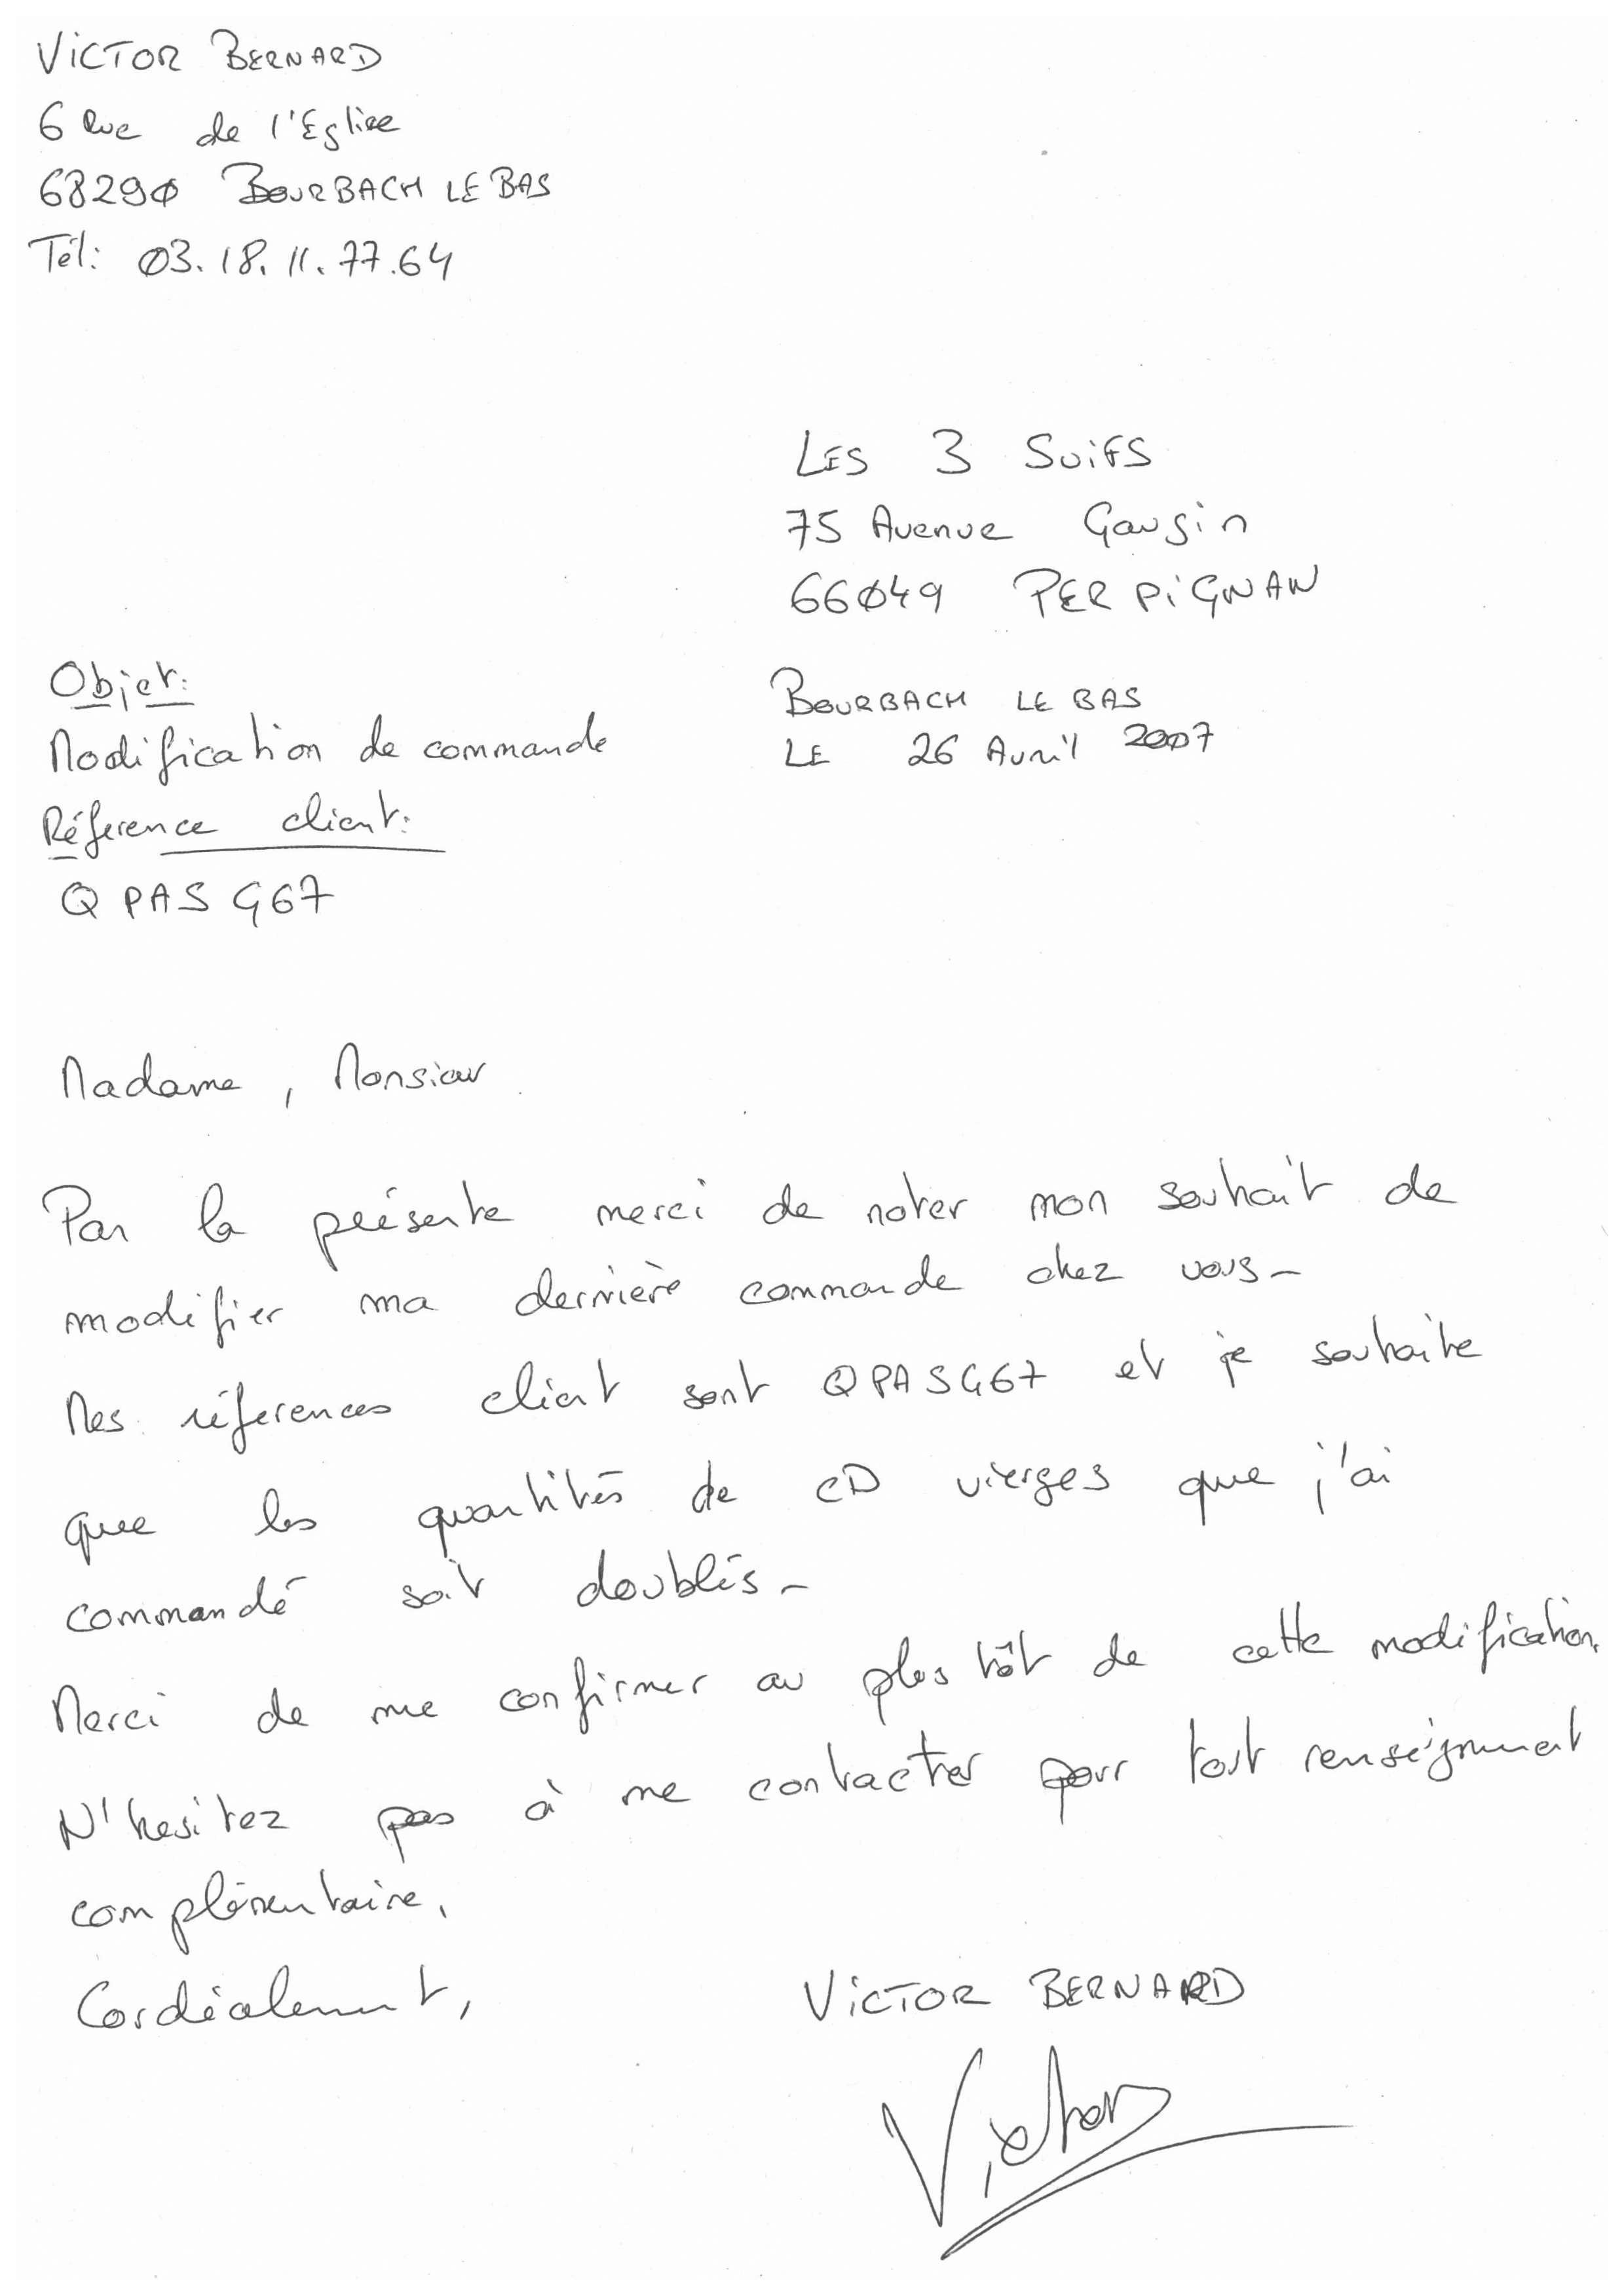 VICTOR BERNARD
6 Rue de l'Eglise
68290 BOURBACH LE BAS
Tél: 03.18.11.77.64
LES 3 SUIFS
75 Avenue Gaugin
66049 PERPIGNAN
Objet:
Modification de commande
Réference client:
QPASG67
BOURBACH LE BAS
LE 26 Avril 2007
Madame, Monsieur
Par la présente merci de noter mon souhait de
modifier ma dernière commande chez vous-
Mes réferences client sont QPASG67 et je souhaite
que les quantités de CD vierges que j'ai
commandé soit doublés-
Merci de me confirmer au plus tôt de cette modification.
N'hesitez pas à me contacter pour tout renseignement
complémentaire.
Cordialement,
VICTOR BERNARD
Victor